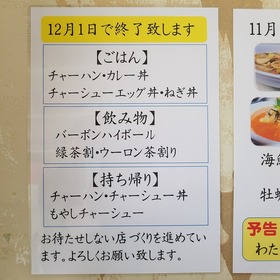 12月1日で終了致します
【ごはん】
チャーハン・カレー丼
チャーシューエッグ丼・ねぎ丼
【飲み物】
バーボンハイボール
緑茶割・ウーロン茶割り
【持ち帰り】
チャーハン・チャーシュー丼
もやしチャーシュー
お待たせしない店づくりを進めてい
ます。よろしくお願い致します。
11月
海鮮
牡蠣
予告
わた